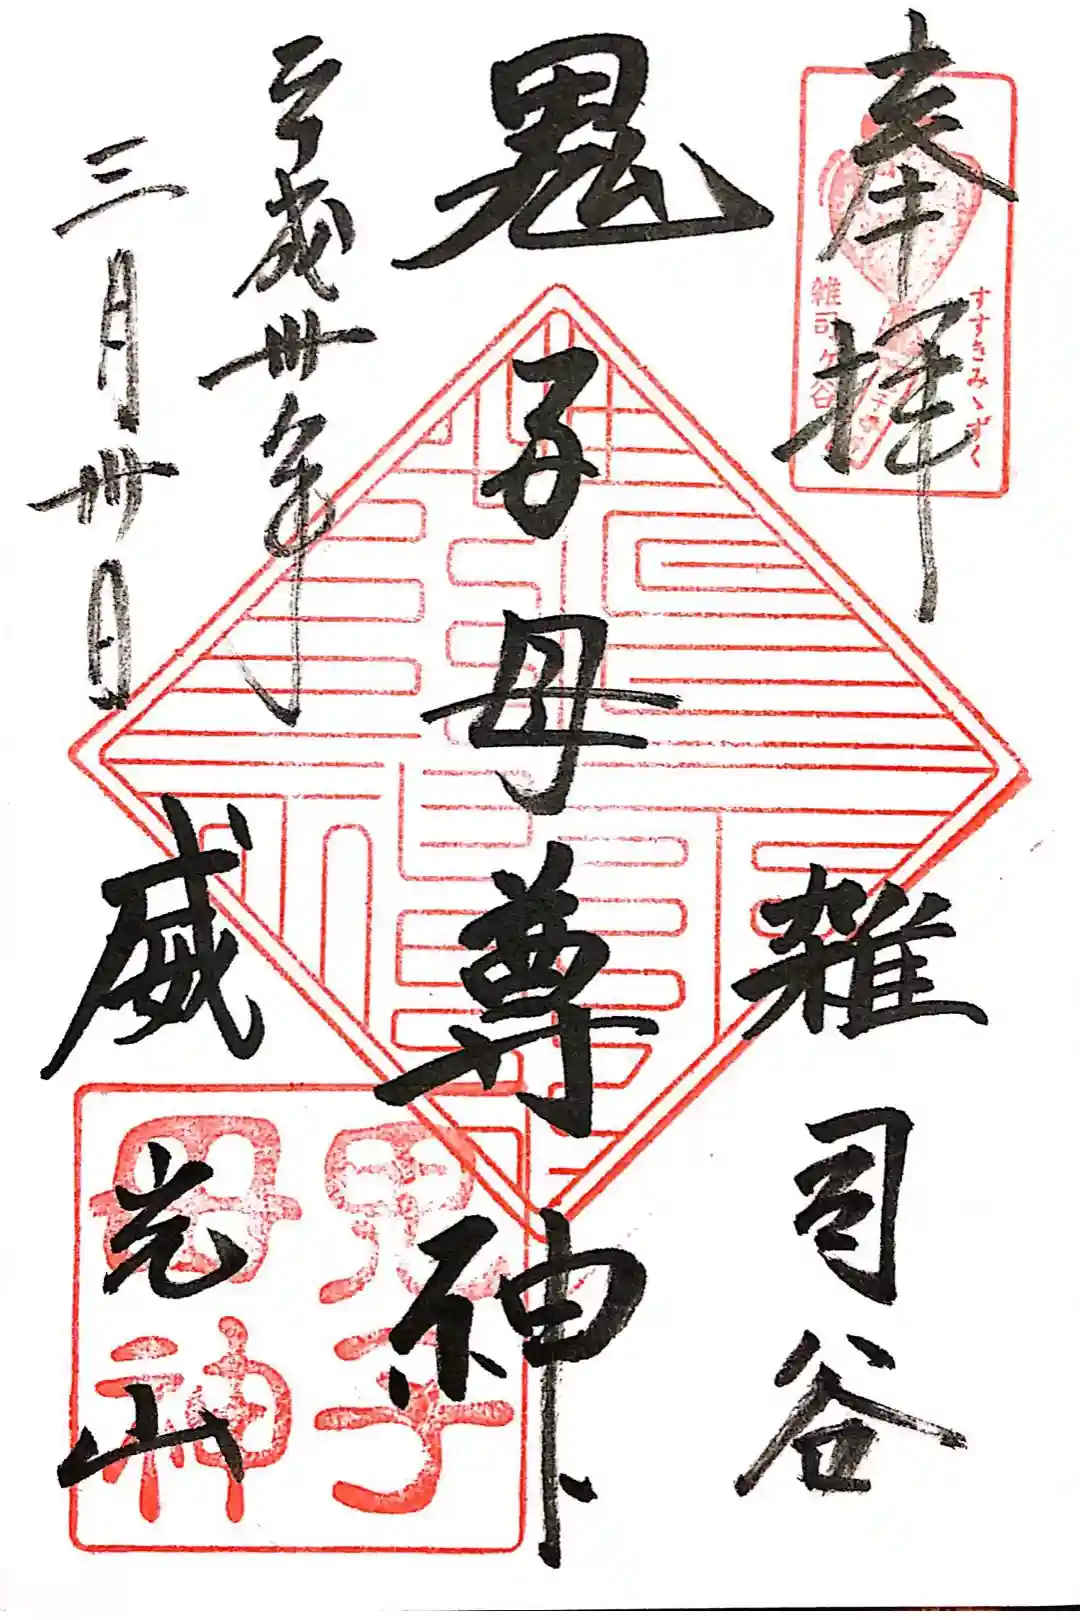 奉拝
すすきみゝずく
雑司ヶ谷
雑司谷
鬼子母尊神
平成卅年
三月卅日
威光山
鬼子
母神